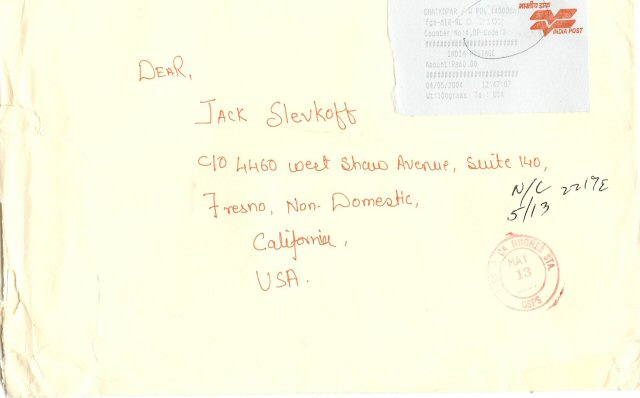 GHATKOPAR
Counter No:4,OP-Code:
INDIA POSTAGE
Amount:Rs60.00
04/05/2004 12:47:07
To : USA
भारतीय डाक
INDIA POST
DEAR,
JACK Slevkoff
C/O 4460 west Shaw Avenue, Suite 140,
Fresno, Non-Domestic,
California,
USA.
N/C 2217E
5/13
HUGHES STA.
MAY
13
USPS